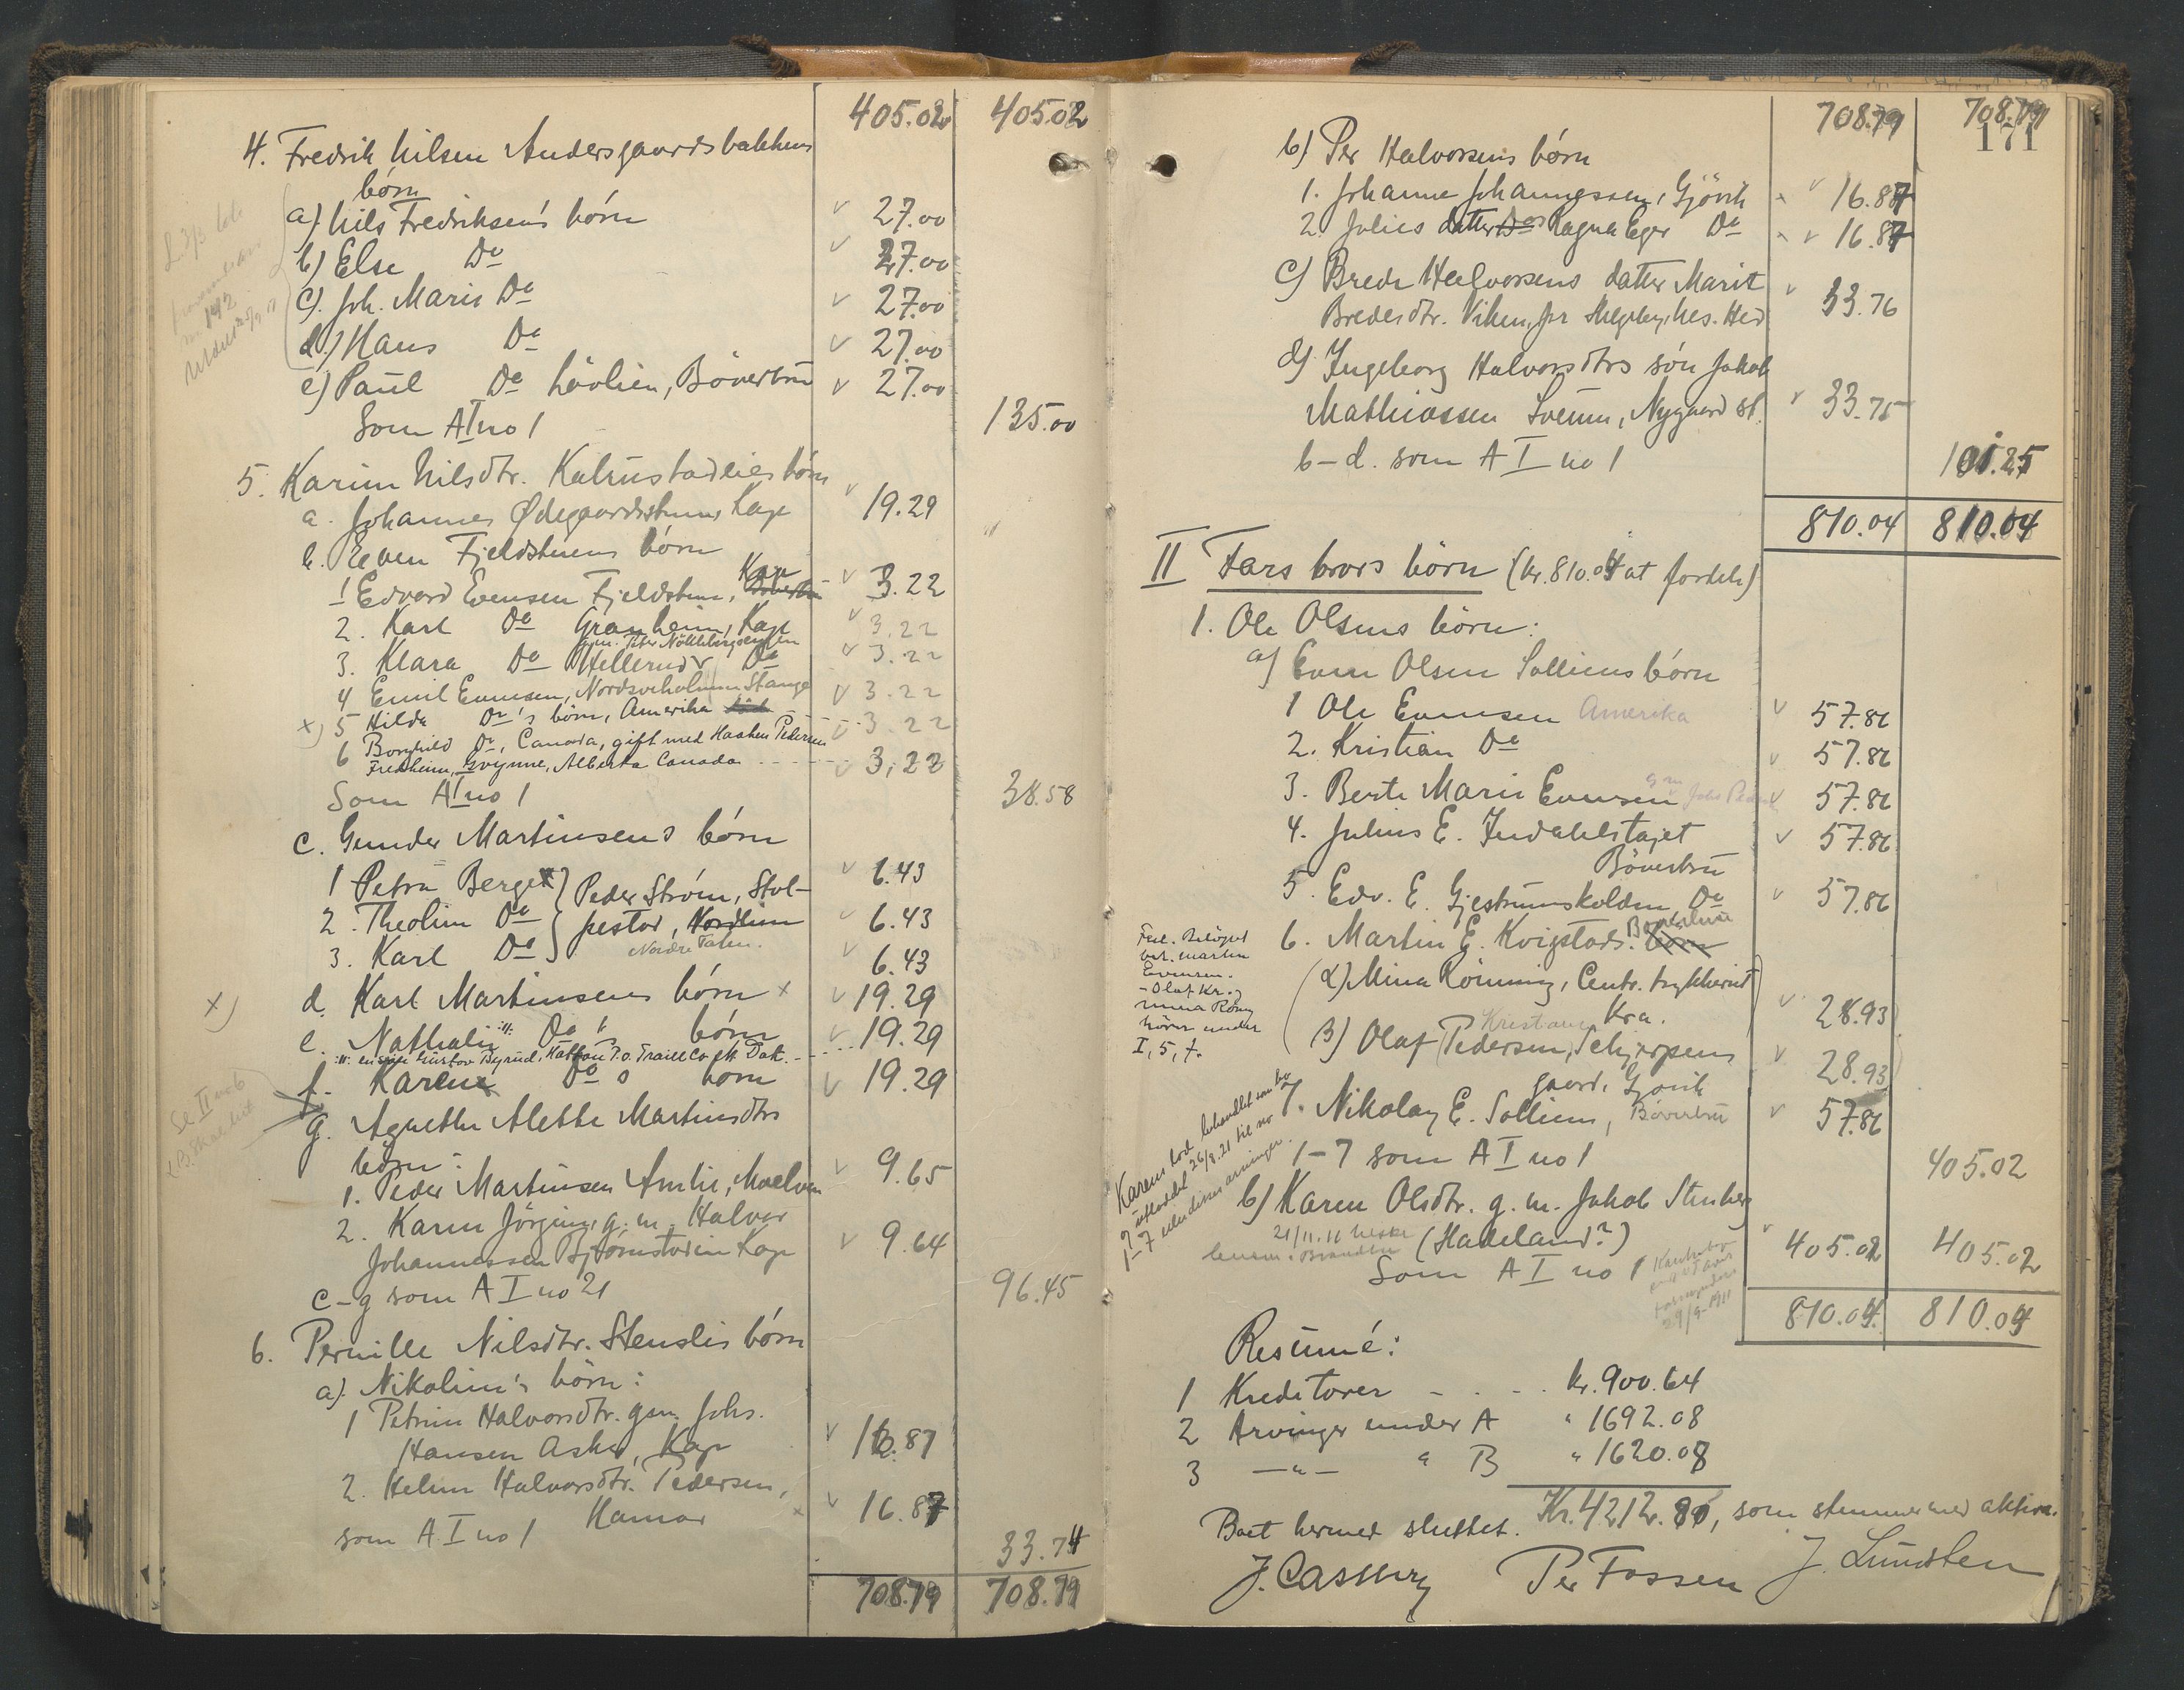 405.02 405.02
4. Fredrik Nilsen Andersgaardsbakkens
børn
a) Nils Fredriksens børn 27.00
b) Else Do 27.00
c) Joh. Marie Do 27.00
d) Hans Do 27.00
e) Paul Do Lövlien, Böverbru 27.00
Som A I no 1 135.00
5. Karine Nilsdtr. Kalrustadlies børn
a. Johannes Ødegaardsstuen, Kap 19.29
b. Even Fjeldstuens børn
1 Edvard Evensen Fjeldstuen, Kap 3.22
2. Karl Do Granheim, Kap 3.22
gm. Peter Nökleby
3. Klara Do Hellerud Do 3.22
4 Emil Evensen, Stange 3.22
x) 5 Hilda Do's børn, Amerika 3.22
6 Borghild Do, Canada, gift med Haaken Pedersen
Fredheim, Gwynne, Alberta Canada 3,22
Som A I no 1 38.58
c. Gunder Martinsens børn
1 Petra Berge 6.43
Peder Ström, Stol-
2. Theoline Do pestad, Nordlien 6.43
3. Karl Do Nordre 6.43
x) d. Karl Martinsens børn x 19.29
e. Nathalie Do's børn 19.29
Gustav Byrud, Hatton P.O. Traill Co N. Dak.
f. Karen Do s børn 19.29
Se II no 6
g. Agnethe Alette Martinsdtrs
børn:
1. Peder Martinsen Amlie, Moelven 9.65
2. Karen Jörgine, g. m. Halvor
Johannessen Bjørnstadeie Kap 9.64
c-g som A I no 21 96.45
6. Pernille Nilsdtr. Stenslis børn
a). Nikoline's børn:
1 Petrine Halvorsdtr. gm. Johs.
Hansen Asker, Kap 16.87
2. Helene Halvorsdtr. Pedersen,
Hamar 16.87
som A I no 1 33.74
708.79 708.79
708.79 708.79
171
b) Per Halvorsens børn
1. Johanne Johannessen, Gjövik 16.87
2. Julies datter Ragna Eger Do 16.87
c) Brede Halvorsens datter Marit
Bredesdtr. Viken, pr Helgeby, Nes. Hed 33.76
d) Ingeborg Halvorsdtrs sön Jakob
Mathiassen Sveum, Nygaard st. 33.75
b-d. som A I no 1 101.25
810.04 810.04
II Fars brors børn (kr. 810.04 at fordele)
1. Ole Olsens børn:
a) Even Olsen Solliens børn
1 Ole Evensen Amerika 57.86
2. Kristian Do 57.86
3. Berte Marie Evensen gm 57.86
4. Julius E. Indahlstajet 57.86
Böverbru
5. Edv. E. Gjestrumskolden Do 57.86
6. Martin E. Kvigstads børn Böverbru
Martin
Evensen.
- Olaf Kr. og
Mina Röning
hörer under
I, 5, 7.
(α) Mina Rönning, Centr. trykkeriet
Kristiania Kra. 28.93
(β) Olaf Pedersen, Schjerpens
gaard, Gjövik 28.93
7. Nikolay E. Sollien, Böverbru 57.86
1-7 som A I no 1 405.02
Karens lod behandlet som bo
utlodet 26/8.21 til no
1-7 arvinger.
b) Karen Olsdtr. g. m. Jakob Stubeg
21/11.16
(Hadeland?) 405.02 405.02
Som A I no 1
29/9-1911
810.04 810.04
Resümé:
1 Kreditorer - . - . kr. 900.64
2 Arvinger under A " 1692.08
3 -"- " B " 1620.08
Kr. 4212.80, som stemmer med aktiva.
Boet hermed sluttet.
J. Cassberg Per Fossen J. Lundsten